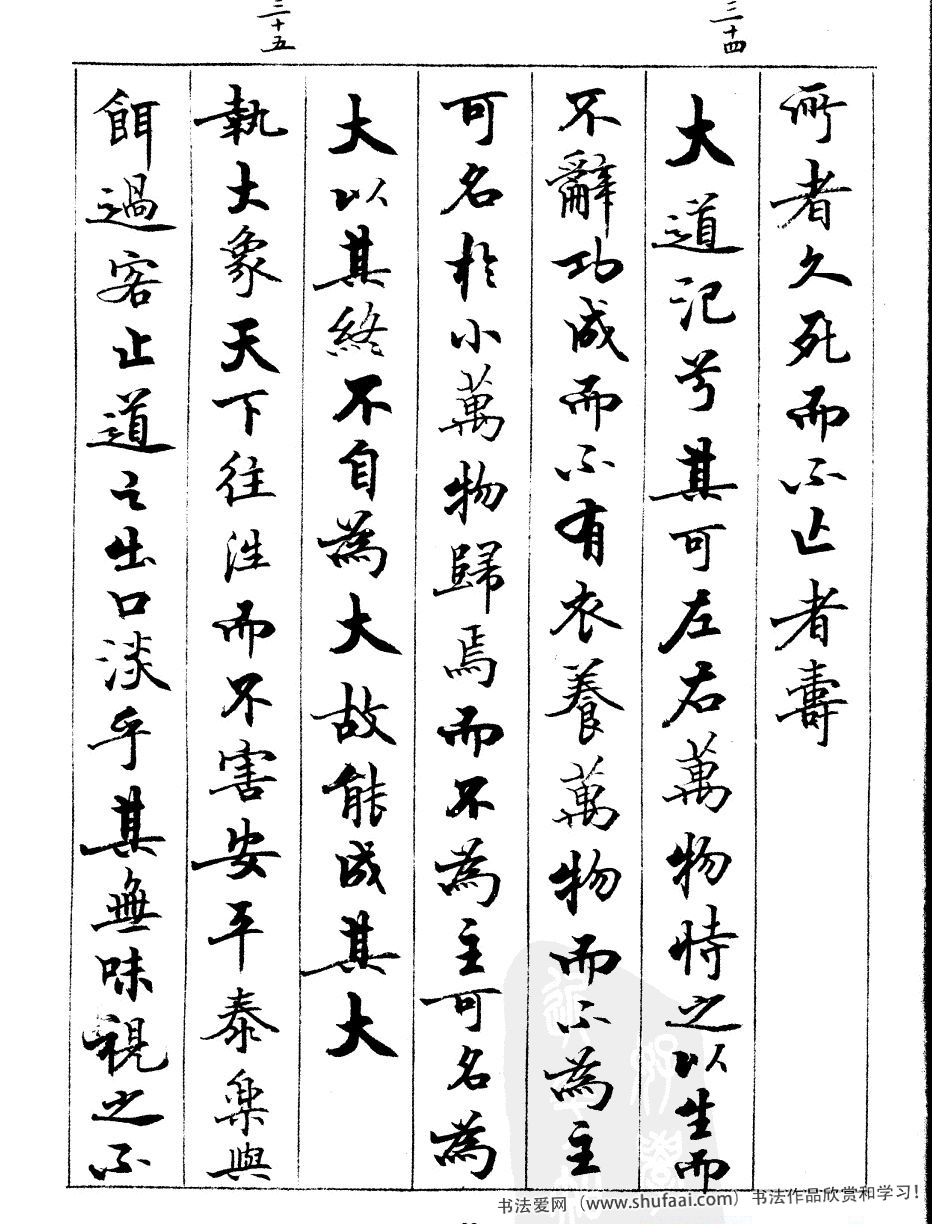 三十四
所者久死而不亡者壽
大道氾兮其可左右萬物恃之以生而
不辭功成而不有衣養萬物而不為主
可名於小萬物歸焉而不為主可名為
大以其終不自為大故能成其大
三十五
執大象天下往往而不害安平泰樂與
餌過客止道之出口淡乎其無味視之不
书法爱网（www.shufaai.com）书法作品欣赏和学习！